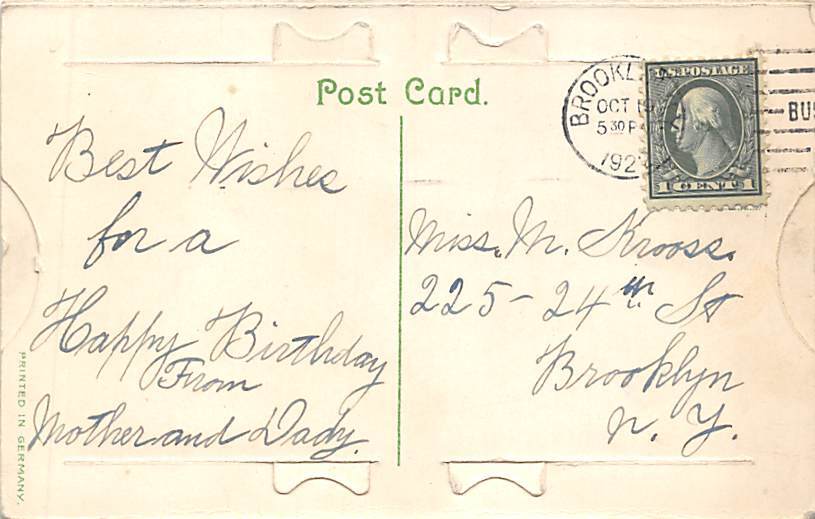 Post Card.
BROOKLY
OCT 19
5 30 P
192
U.S. POSTAGE
1 CENT 1
BUS
Best Wishes
for a
Happy Birthday
From
Mother and Dady.
Miss. M. Krooss.
225 - 24th St
Brooklyn
N. Y.
PRINTED IN GERMANY.